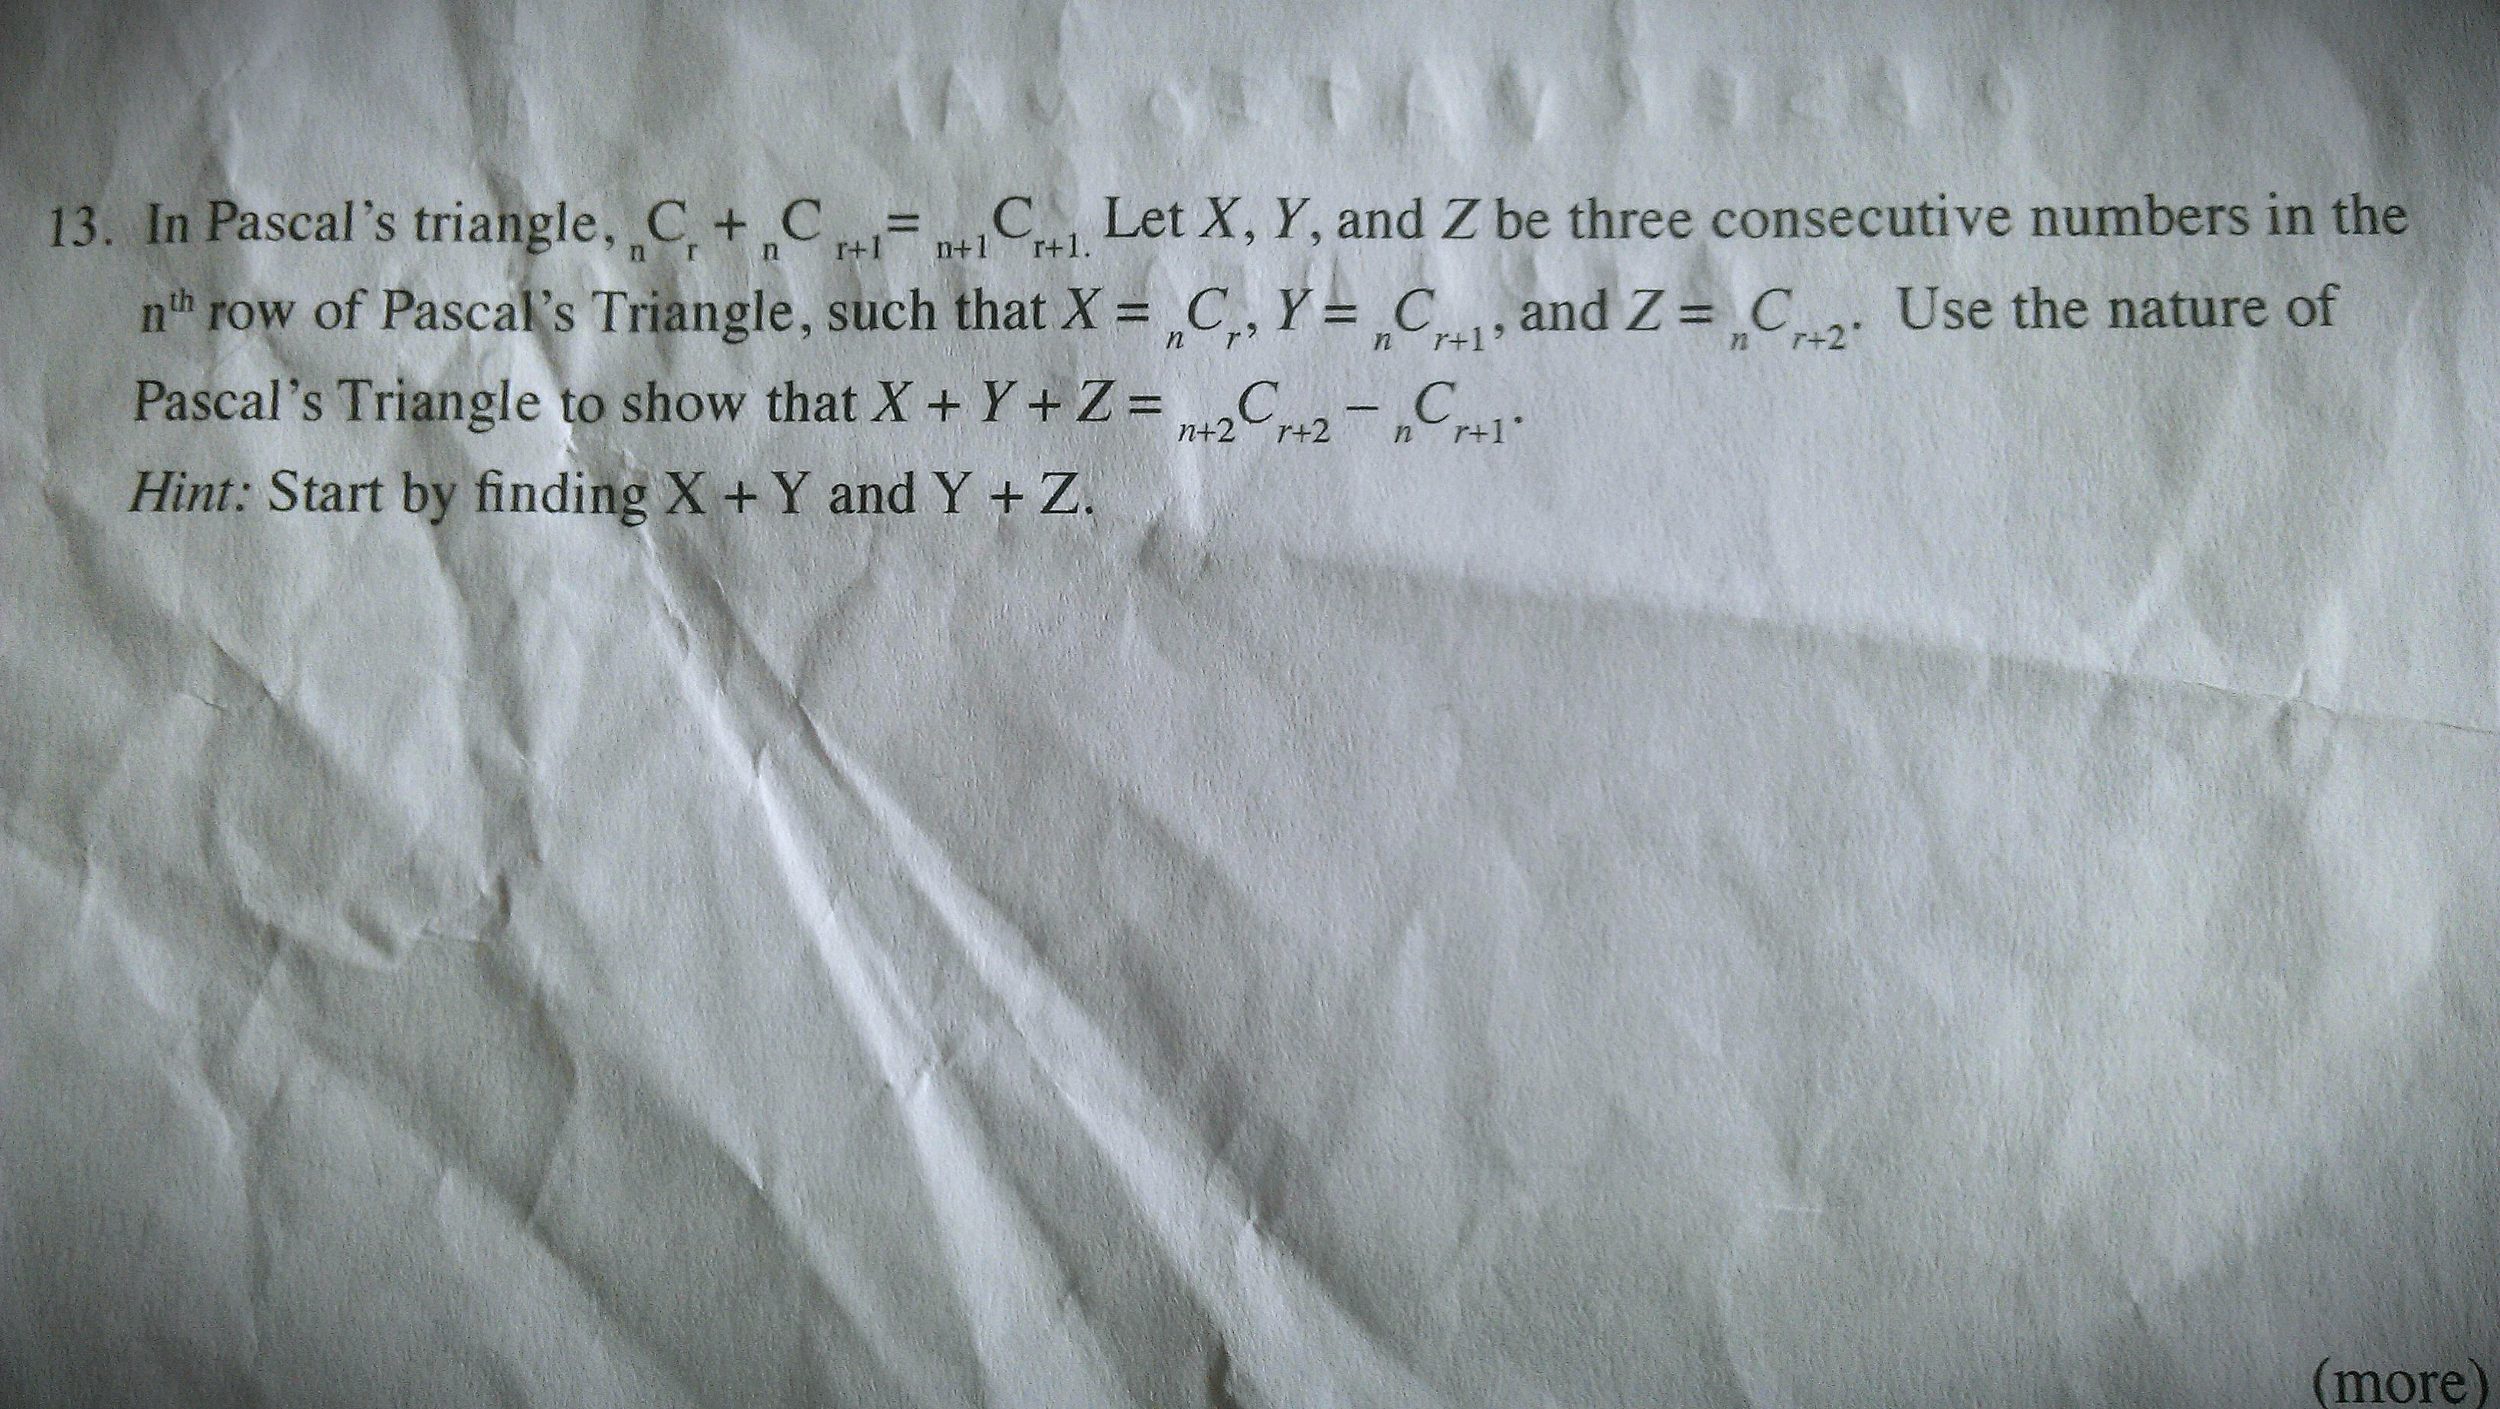 13. In Pascal's triangle, ₙCᵣ + ₙC ᵣ₊₁= ₙ₊₁Cᵣ₊₁. Let X, Y, and Z be three consecutive numbers in the
nᵗʰ row of Pascal's Triangle, such that X = ₙCᵣ, Y = ₙCᵣ₊₁, and Z = ₙCᵣ₊₂. Use the nature of
Pascal's Triangle to show that X + Y + Z = ₙ₊₂Cᵣ₊₂ – ₙCᵣ₊₁.
Hint: Start by finding X + Y and Y + Z.
(more)